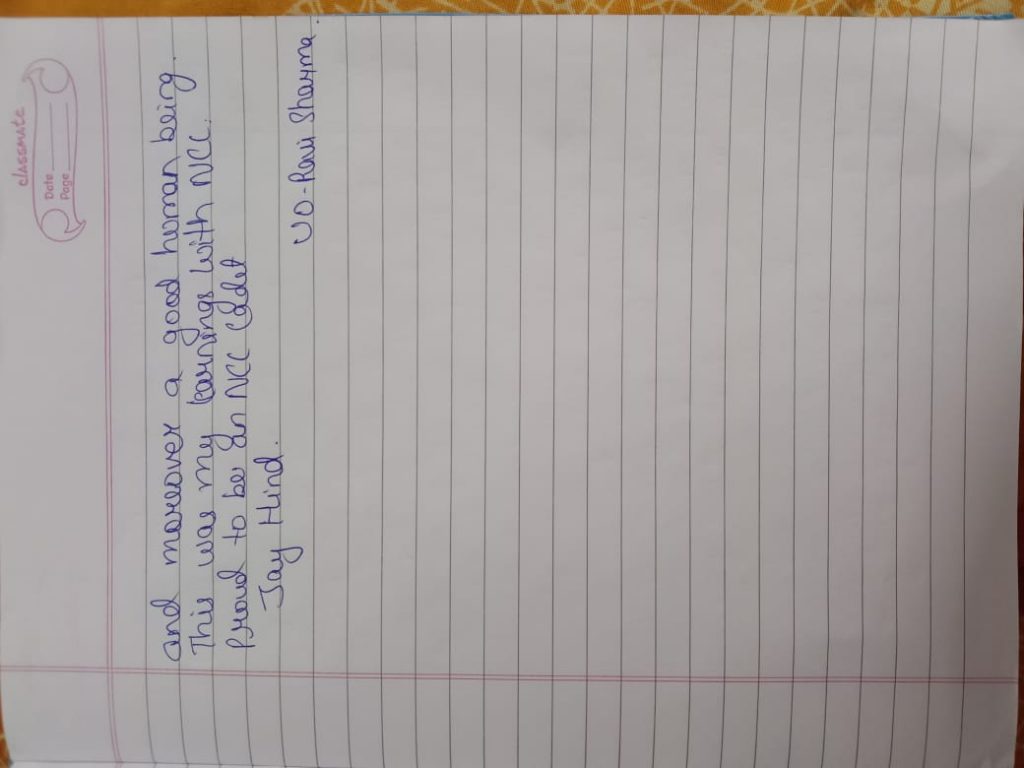 classmate
Date
Page
and moreover a good human being.
This was my learnings with NCC.
Proud to be an NCC Cadet
Jay Hind.
UO-Ravi Sharma.